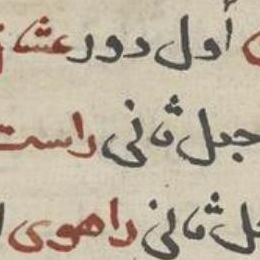 أول دور عشا
جعل ثانی راست
ثانی راهوی